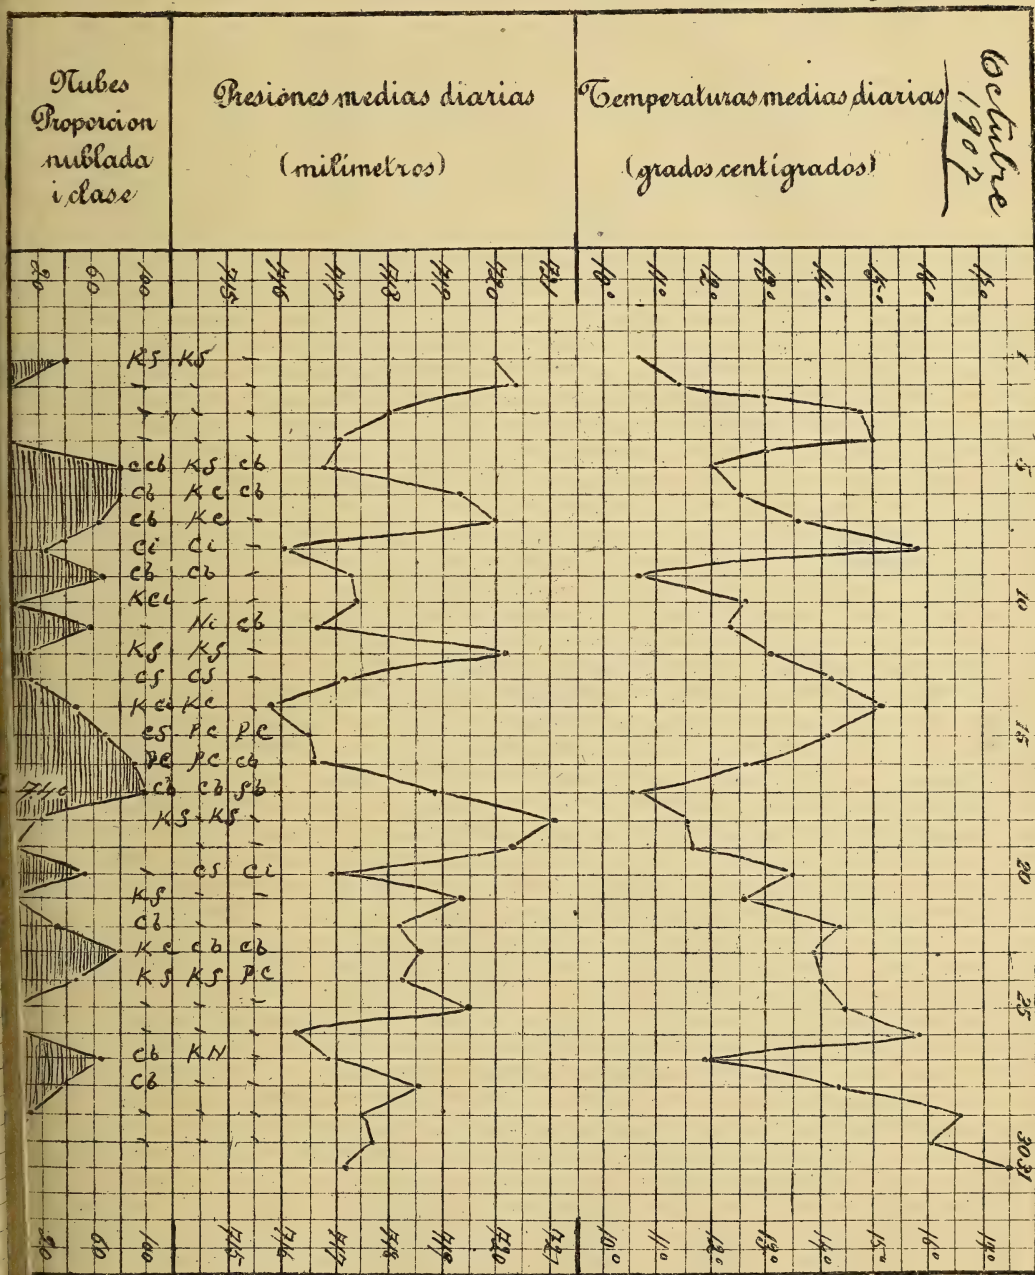 Nubes
Proporcion
nublada
i clase
Presiónes medias diarias
(milímetros)
Temperaturas medias diarias
(grados centígrados)
Octubre
1907
20 60 100 715 716 717 718 719 720 721 10° 11° 12° 13° 14° 15° 16° 17°
1
KS KS -
- - -
- - -
- - -
5
ccb KS cb
cb Kc cb
cb Kc -
Ci Ci -
cb cb -
10
Kci - -
- Ni cb
KS KS -
CS CS -
Kci Kc -
15
CS PC PC
PC PC cb
cb cb Sb
KS KS -
- - -
20
- CS Ci
KS - -
Cb - -
Kc cb cb
KS KS PC
25
- - -
- - -
cb KN -
Cb - -
- - -
- - -
30 31
20 60 100 715 716 717 718 719 720 721 10° 11° 12° 13° 14° 15° 16° 17°